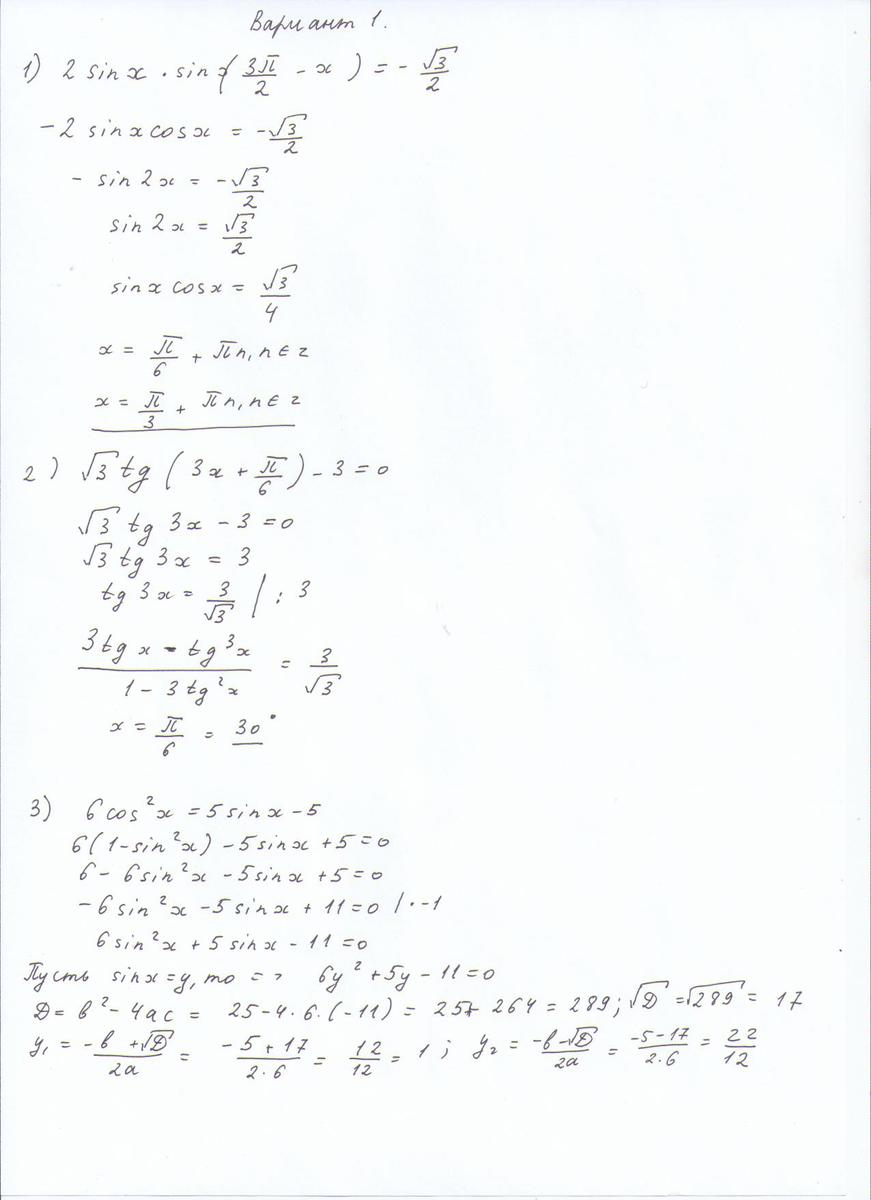 Вариант 1.
1) 2 sin x · sin (3π/2 - x) = - √3/2
-2 sin x cos x = -√3/2
- sin 2x = -√3/2
sin 2x = √3/2
sin x cos x = √3/4
x = π/6 + πn, n ∈ z
x = π/3 + πn, n ∈ z
2) √3 tg (3x + π/6) - 3 = 0
√3 tg 3x - 3 = 0
√3 tg 3x = 3
tg 3x = 3/√3 | : 3
(3tg x - tg³x)/(1 - 3tg²x) = 3/√3
x = π/6 = 30°
3) 6cos²x = 5 sin x - 5
6(1-sin²x) - 5 sin x + 5 = 0
6 - 6sin²x - 5 sin x + 5 = 0
-6 sin²x - 5 sin x + 11 = 0 | · -1
6 sin²x + 5 sin x - 11 = 0
Пусть sin x = y, то => 6y² + 5y - 11 = 0
D = b² - 4ac = 25 - 4·6·(-11) = 25 + 264 = 289; √D = √289 = 17
y₁ = (-b + √D)/2a = (-5 + 17)/(2·6) = 12/12 = 1; y₂ = (-b - √D)/2a = (-5 - 17)/(2·6) = 22/12